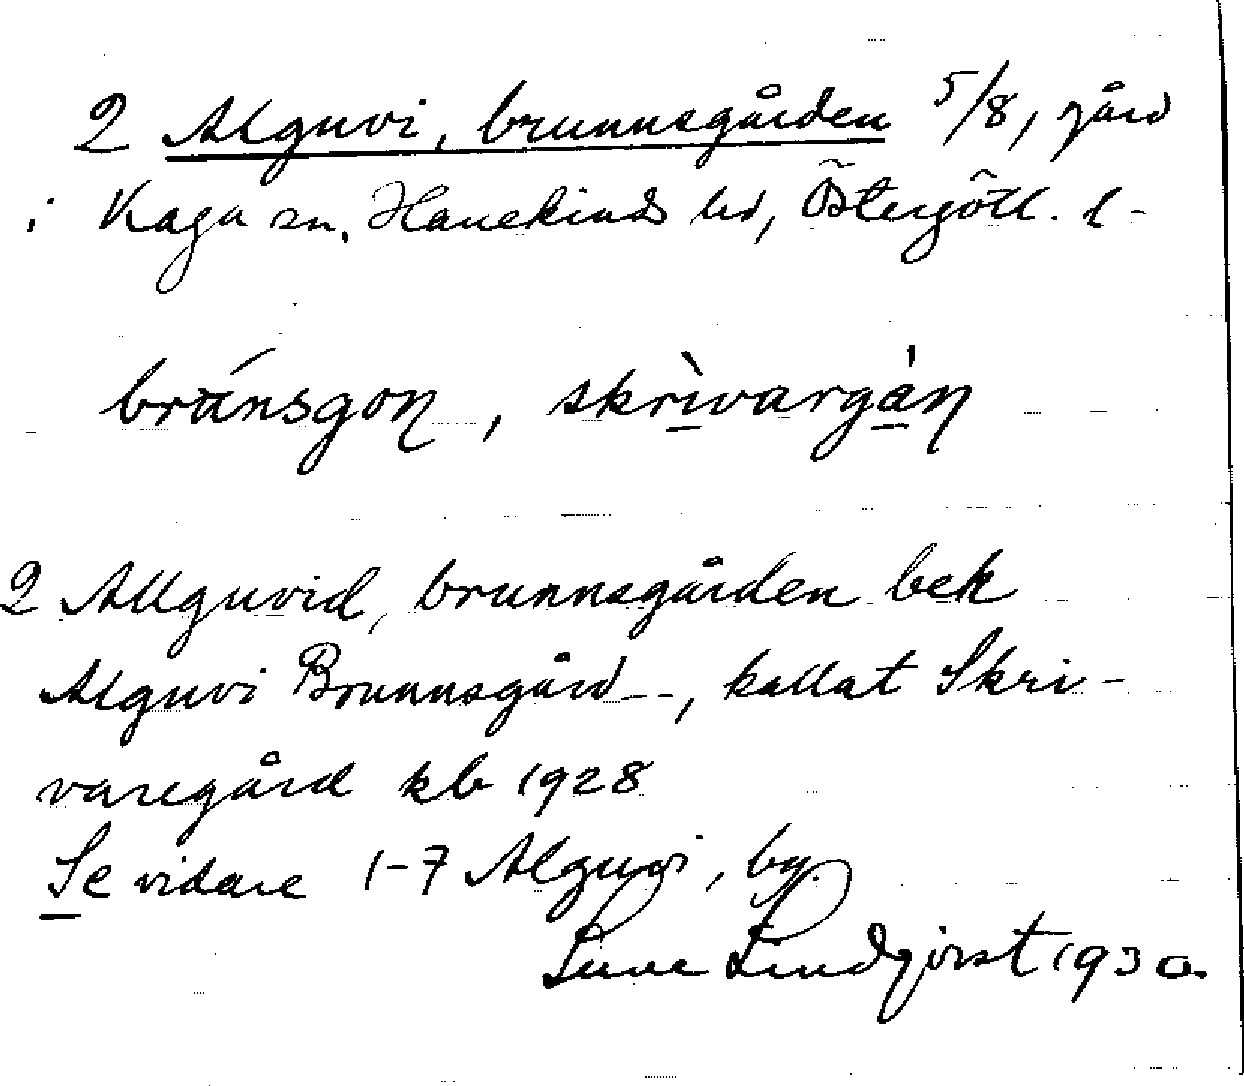 2 Alguvi, brunnsgården 5/8, gård
i Kaga sn, Hanekinds hd, Östergötl. l.
bránsgoɳ, skrìvargàɳ
2 Allguvid, brunnsgården bek
Alguvi Brunnsgård --, kallat Skri-
varegård kb 1928
Se vidare 1-7 Alguvi, by.
Sune Lindqvist 1930